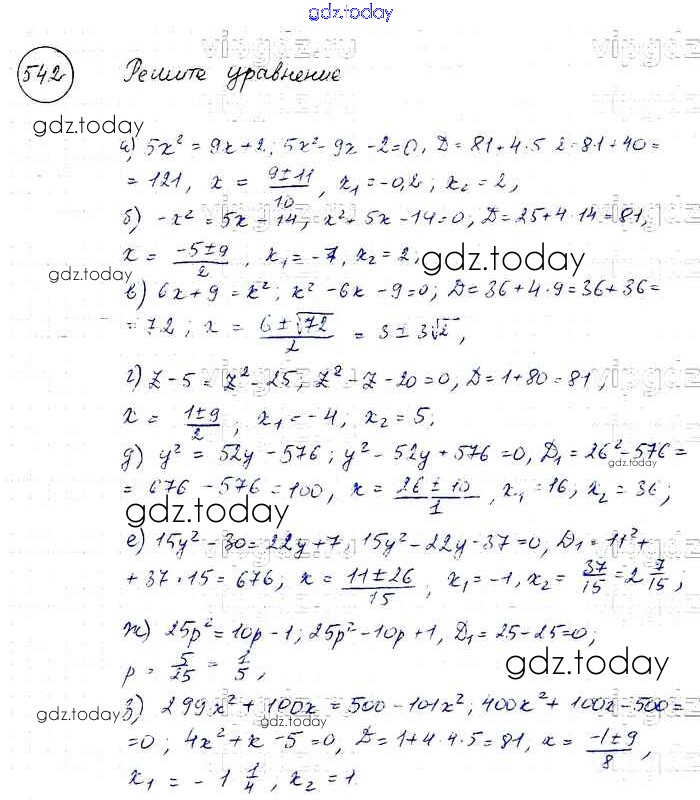 gdz.today
vipgdz.ru
542 Решите уравнение
gdz.today
а) 5x² = 9x+2; 5x²-9x-2=0, D = 81+4·5·2=81+40=
= 121, x = (9±11)/10, x₁=-0,2; x₂=2,
б) -x² = 5x-14; x²+5x-14=0; D=25+4·14=81,
x = (-5±9)/2, x₁=-7, x₂=2;
gdz.today
gdz.today
в) 6x+9=x²; x²-6x-9=0; D=36+4·9=36+36=
=72; x = (6±√72)/2 = 3±3√2,
г) z-5=z²-25, z²-z-20=0, D=1+80=81,
x = (1±9)/2, x₁=-4; x₂=5;
д) y² = 52y-576; y²-52y+576=0, D₁=26²-576=
= 676-576=100, x = (26±10)/1, x₁=16; x₂=36;
gdz.today
gdz.today
е) 15y²-30=22y+7, 15y²-22y-37=0, D₁=11²+
+37·15=676; x = (11±26)/15, x₁=-1, x₂ = 37/15 = 2 7/15;
ж) 25p²=10p-1; 25p²-10p+1, D₁=25-25=0;
p = 5/25 = 1/5,
gdz.today
gdz.today
gdz.today
з) 299x²+100x=500-101x²; 400x²+100x-500=
=0; 4x²+x-5=0, D=1+4·4·5=81, x = (-1±9)/8,
x₁ = -1 1/4, x₂=1